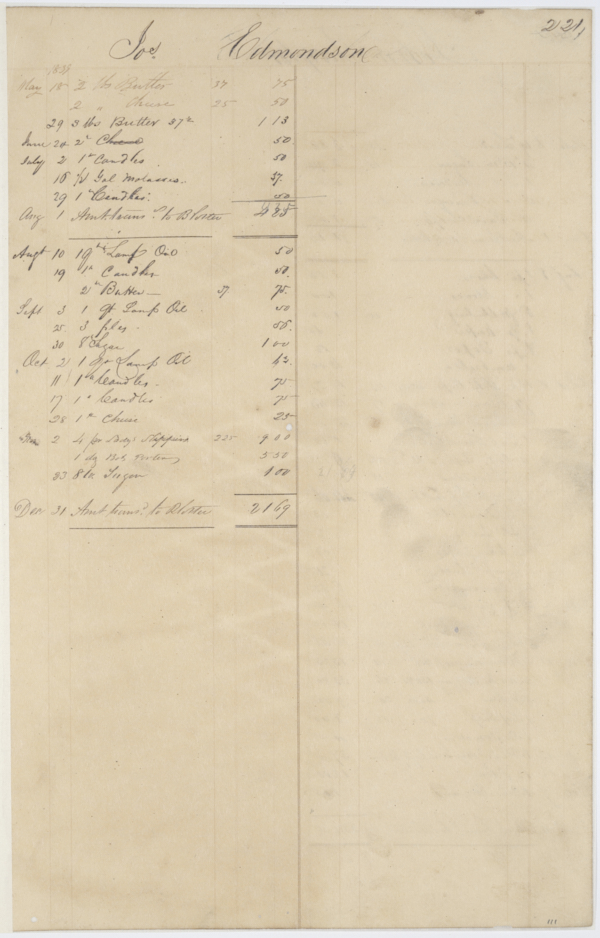 221,
Jos. Edmondson
May 18 2 lbs Butter 37 75
2 " Cheese 25 50
29 3 lbs Butter 37½ 1 13
June 20 2 " Cheese 50
July 2 1 " Candles 50
16 ½ Gal Molasses. 37.
29 1 " Candles. 50
Aug 1 Amt trans. to Bloster 4 25
Augt 10 1 qt Lamp Oil 50
19 1 " Candles 50.
2 " Butter 37 75.
Sept 3 1 qt Lamp Oil 50
25 3 56.
30 8 " Sugar 1 00
Oct 2 1 Lamp Oil 42.
11 1 " Candles. 75
17 1 " Candles 75
28 1 " Cheese 25
2 4 pr Slippers 225 9 00
1 5 50
23 8 lbs Sugar 1 00
Dec 31 Amt trans. to Bloster 21 69